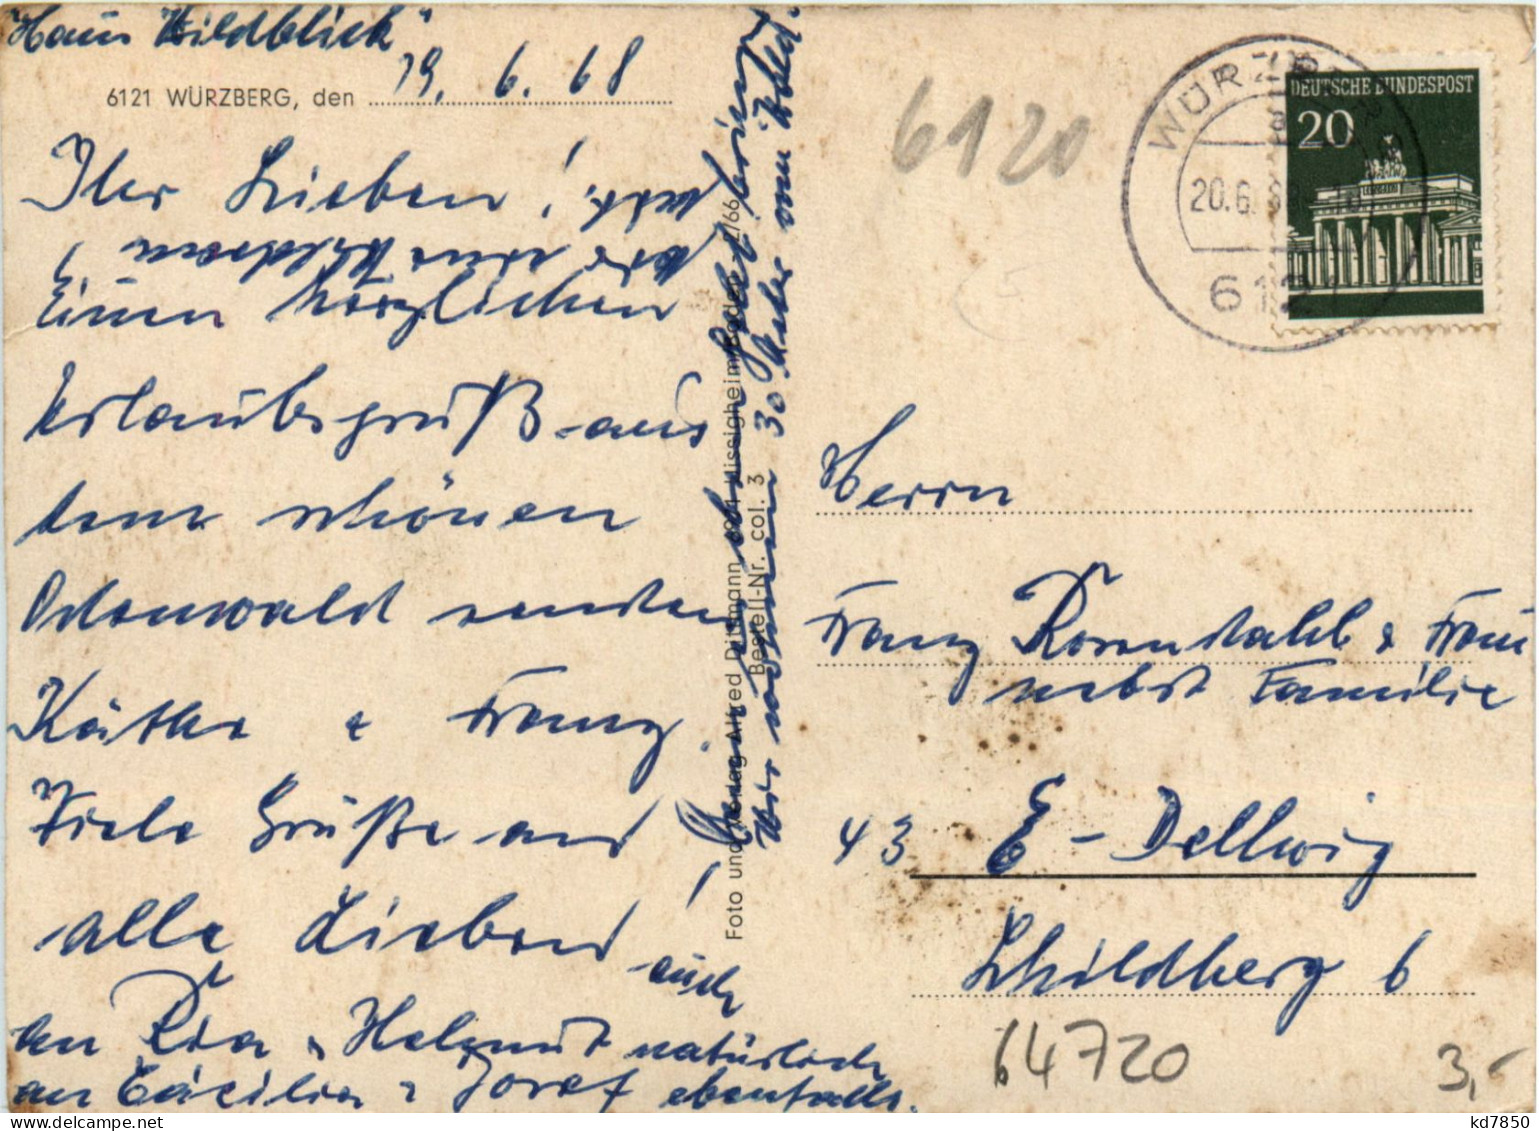 "Haus Wildblick"
6121 WÜRZBERG, den 19. 6. 68
Ihr Lieben!
Einen herzlichen
Urlaubsgruß aus
dem schönen
Odenwald senden
Käthe & Franz.
Viele Grüße an
alle Lieben! auch
an Ria & Helmut natürlich
an Cäcilia & Josef ebenfalls.
Wir wohnen 30 Meter vom Wald.
Foto und Verlag Alfred
Bestell-Nr. col. 3
2/66
6120
WÜRZBERG
20.6.68
612
DEUTSCHE BUNDESPOST
20
Herrn
Franz Rosenstahl & Frau
nebst Familie
43 E-Dellwig
Schildberg 6
64720
3,-
kd7850